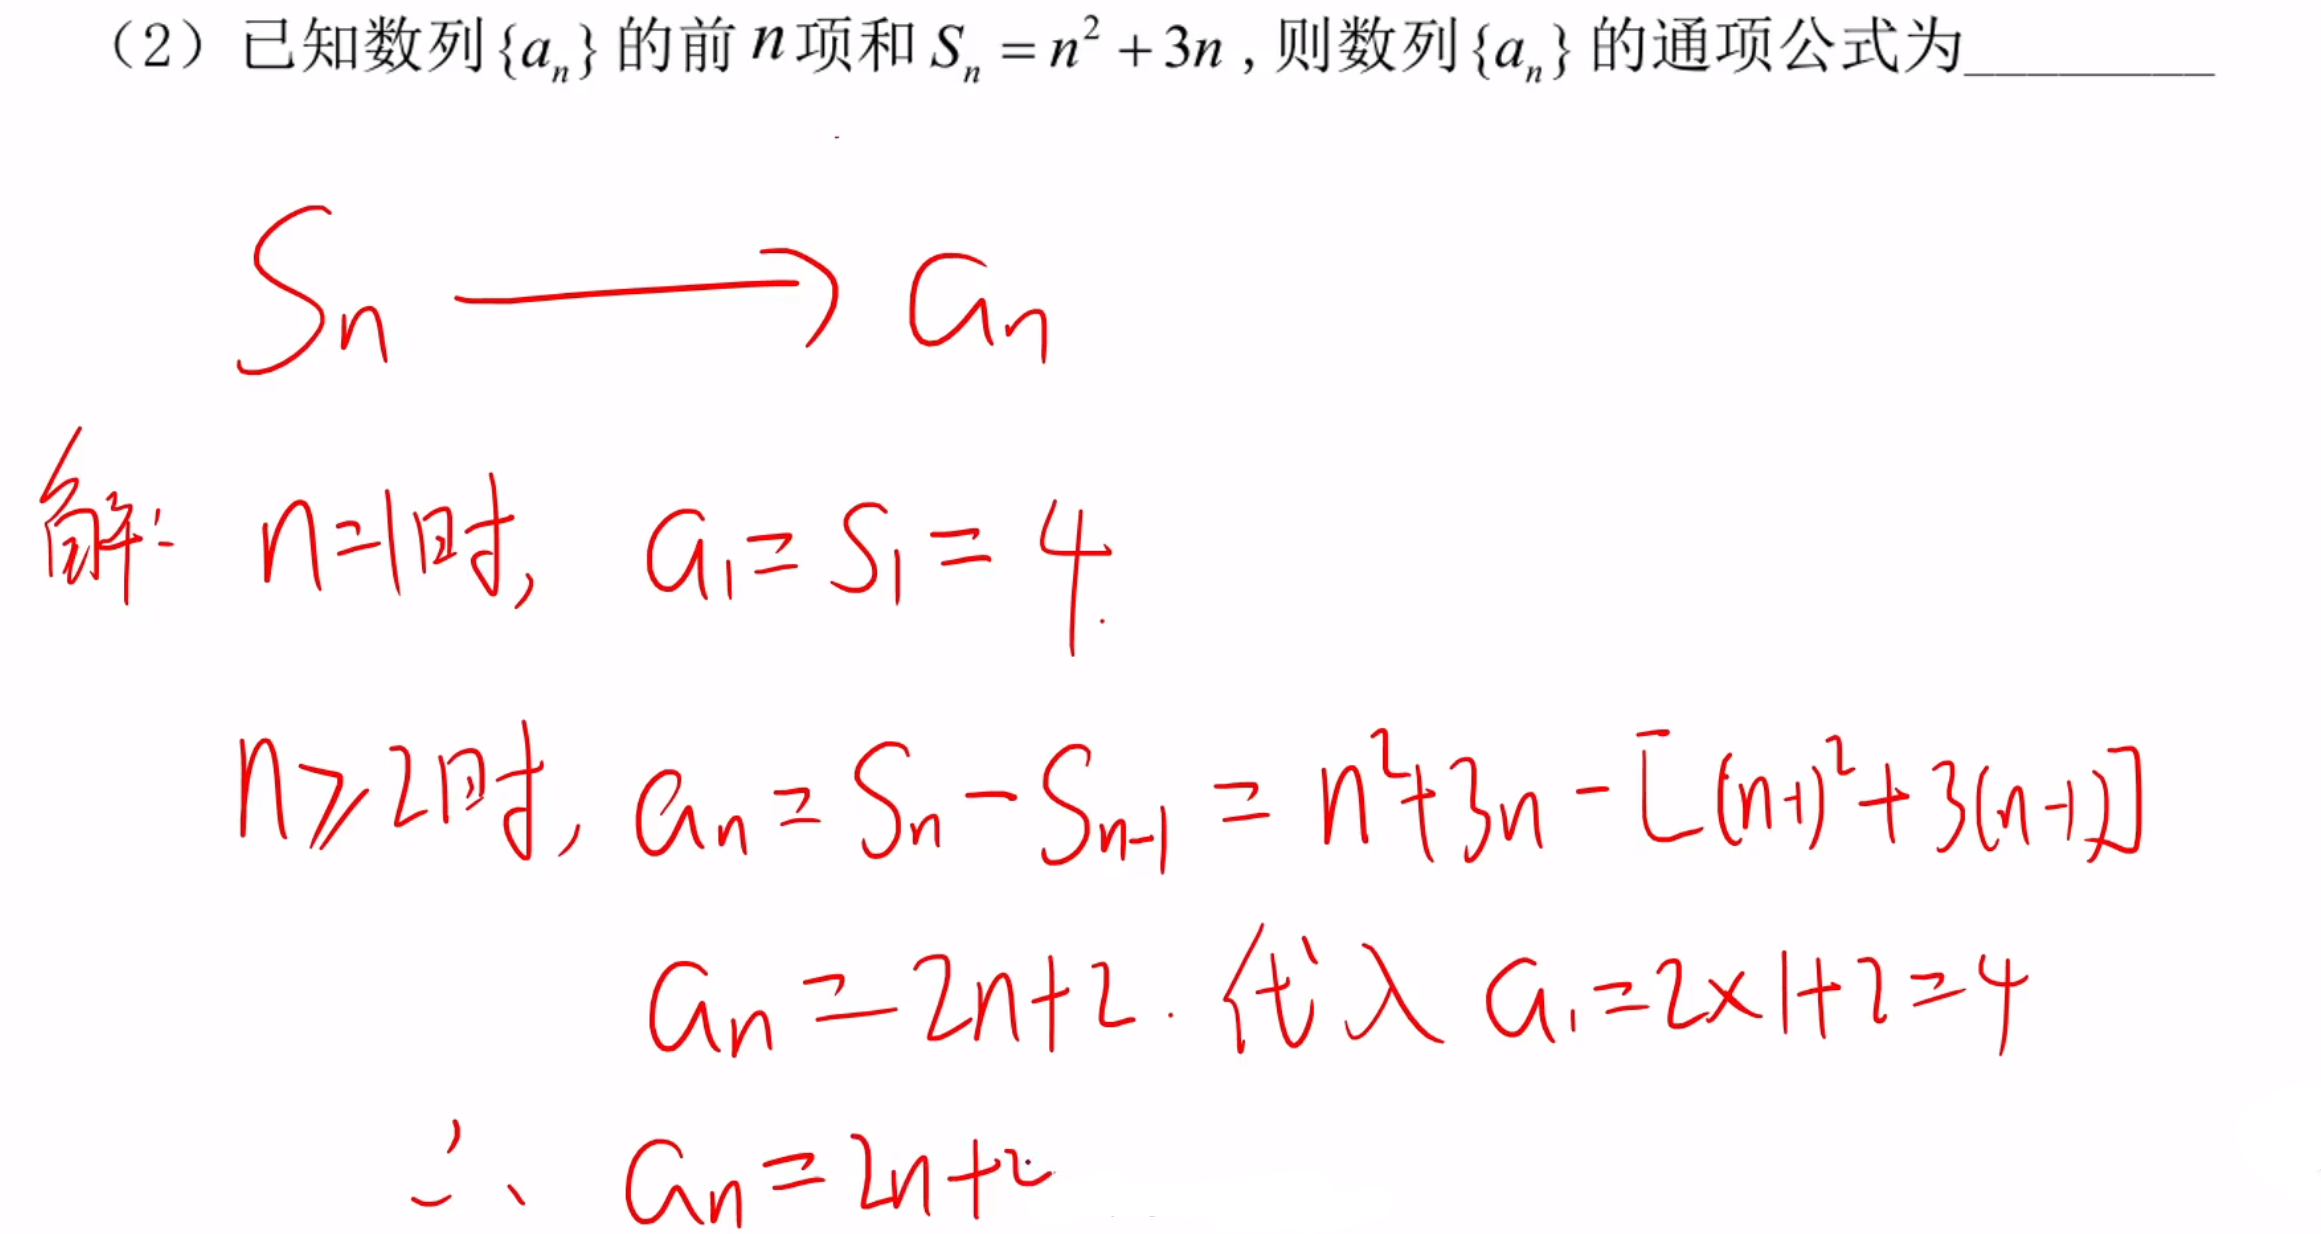 （2）已知数列{aₙ}的前n项和Sₙ=n²+3n，则数列{aₙ}的通项公式为________
Sₙ → aₙ
解: n=1时, a₁=S₁=4.
n≥2时, aₙ=Sₙ-Sₙ₋₁=n²+3n-[(n-1)²+3(n-1)]
aₙ=2n+2. 代入 a₁=2×1+2=4
∴ aₙ=2n+2